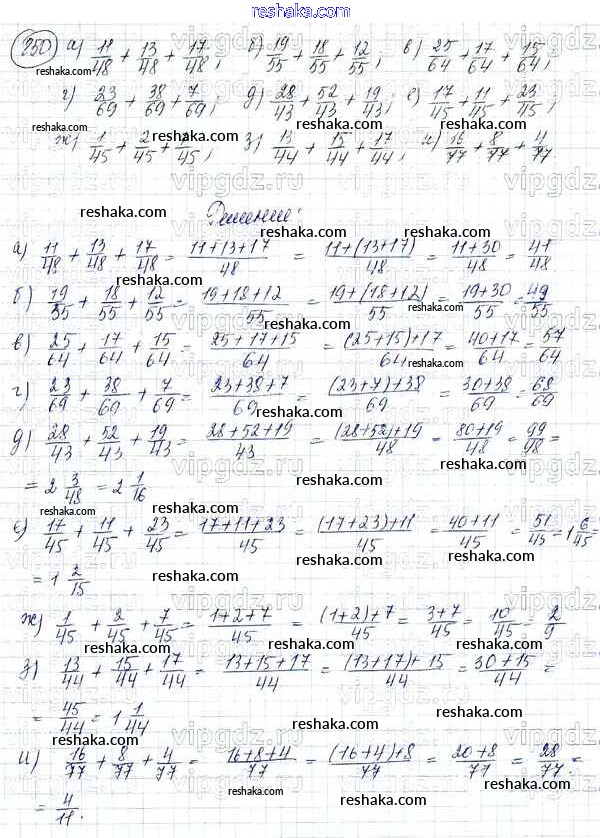 reshaka.com
250) а) 11/48 + 13/48 + 17/48; б) 19/55 + 18/55 + 12/55; в) 25/64 + 17/64 + 15/64;
г) 23/69 + 38/69 + 7/69; д) 28/43 + 52/43 + 19/43; е) 17/45 + 11/45 + 23/45;
ж) 1/45 + 2/45 + 7/45; з) 13/44 + 15/44 + 17/44; и) 16/77 + 8/77 + 4/77
Решение:
а) 11/48 + 13/48 + 17/48 = (11+13+17)/48 = (11+(13+17))/48 = (11+30)/48 = 41/48
б) 19/55 + 18/55 + 12/55 = (19+18+12)/55 = (19+(18+12))/55 = (19+30)/55 = 49/55
в) 25/64 + 17/64 + 15/64 = (25+17+15)/64 = ((25+15)+17)/64 = (40+17)/64 = 57/64
г) 23/69 + 38/69 + 7/69 = (23+38+7)/69 = ((23+7)+38)/69 = (30+38)/69 = 68/69
д) 28/43 + 52/43 + 19/43 = (28+52+19)/43 = ((28+52)+19)/48 = (80+19)/48 = 99/48 =
= 2 3/48 = 2 1/16
е) 17/45 + 11/45 + 23/45 = (17+11+23)/45 = ((17+23)+11)/45 = (40+11)/45 = 51/45 = 1 6/45 =
= 1 2/15
ж) 1/45 + 2/45 + 7/45 = (1+2+7)/45 = ((1+2)+7)/45 = (3+7)/45 = 10/45 = 2/9
з) 13/44 + 15/44 + 17/44 = (13+15+17)/44 = ((13+17)+15)/44 = (30+15)/44 =
= 45/44 = 1 1/44
и) 16/77 + 8/77 + 4/77 = (16+8+4)/77 = ((16+4)+8)/77 = (20+8)/77 = 28/77 =
= 4/11.
vipgdz.ru